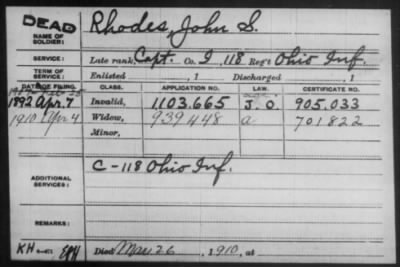 DEAD
NAME OF SOLDIER: Rhodes, John S.
SERVICE: Late rank, Capt. Co. I, 118 Reg't Ohio Inf.
TERM OF SERVICE: Enlisted , 1 Discharged , 1
DATE OF FILING. CLASS. APPLICATION NO. LAW. CERTIFICATE NO.
1892 Apr. 7 Invalid, 1103.665 J.O. 905.033
1910 Apr 4 Widow, 939448 a 701822
Minor,
ADDITIONAL SERVICES: C-118 Ohio Inf.
REMARKS:
KH
Died Mar 26, 1910, at